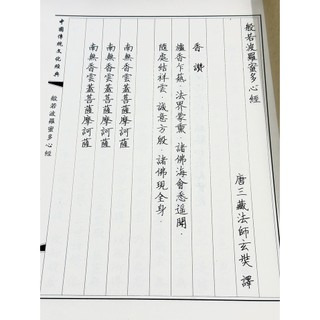 般若波羅蜜多心經
唐三藏法師玄奘 譯
香讚
爐香乍爇．法界蒙熏．諸佛海會悉遙聞．
隨處結祥雲．誠意方殷．諸佛現全身．
南無香雲蓋菩薩摩訶薩
南無香雲蓋菩薩摩訶薩
南無香雲蓋菩薩摩訶薩
中國傳統文化經典
般若波羅蜜多心經